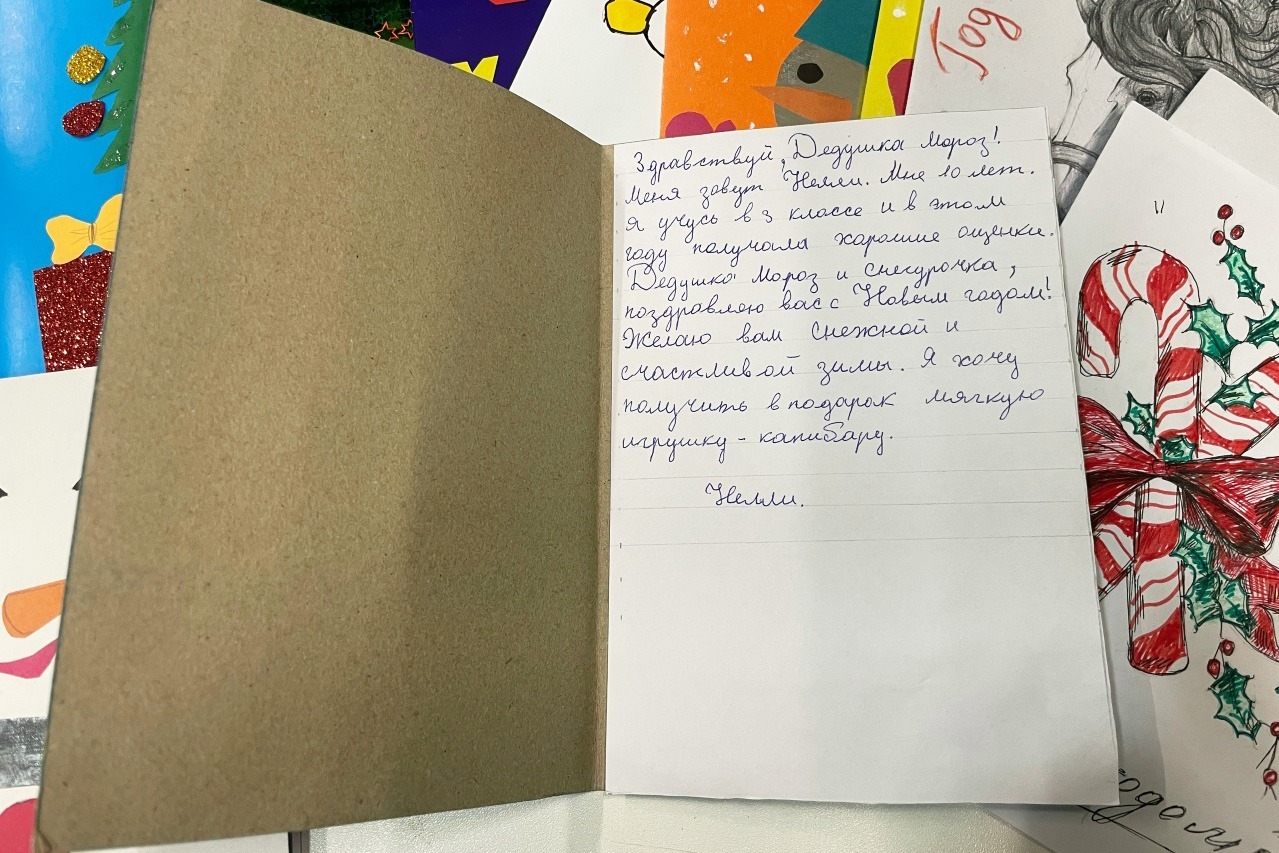 Год
Здравствуй, Дедушка Мороз!
Меня зовут Нелли. Мне 10 лет.
Я учусь в 3 классе и в этом
году получала хорошие оценки.
Дедушка Мороз и Снегурочка,
поздравляю вас с Новым годом!
Желаю вам снежной и
счастливой зимы. Я хочу
получить в подарок мягкую
игрушку - капибару.
Нелли.